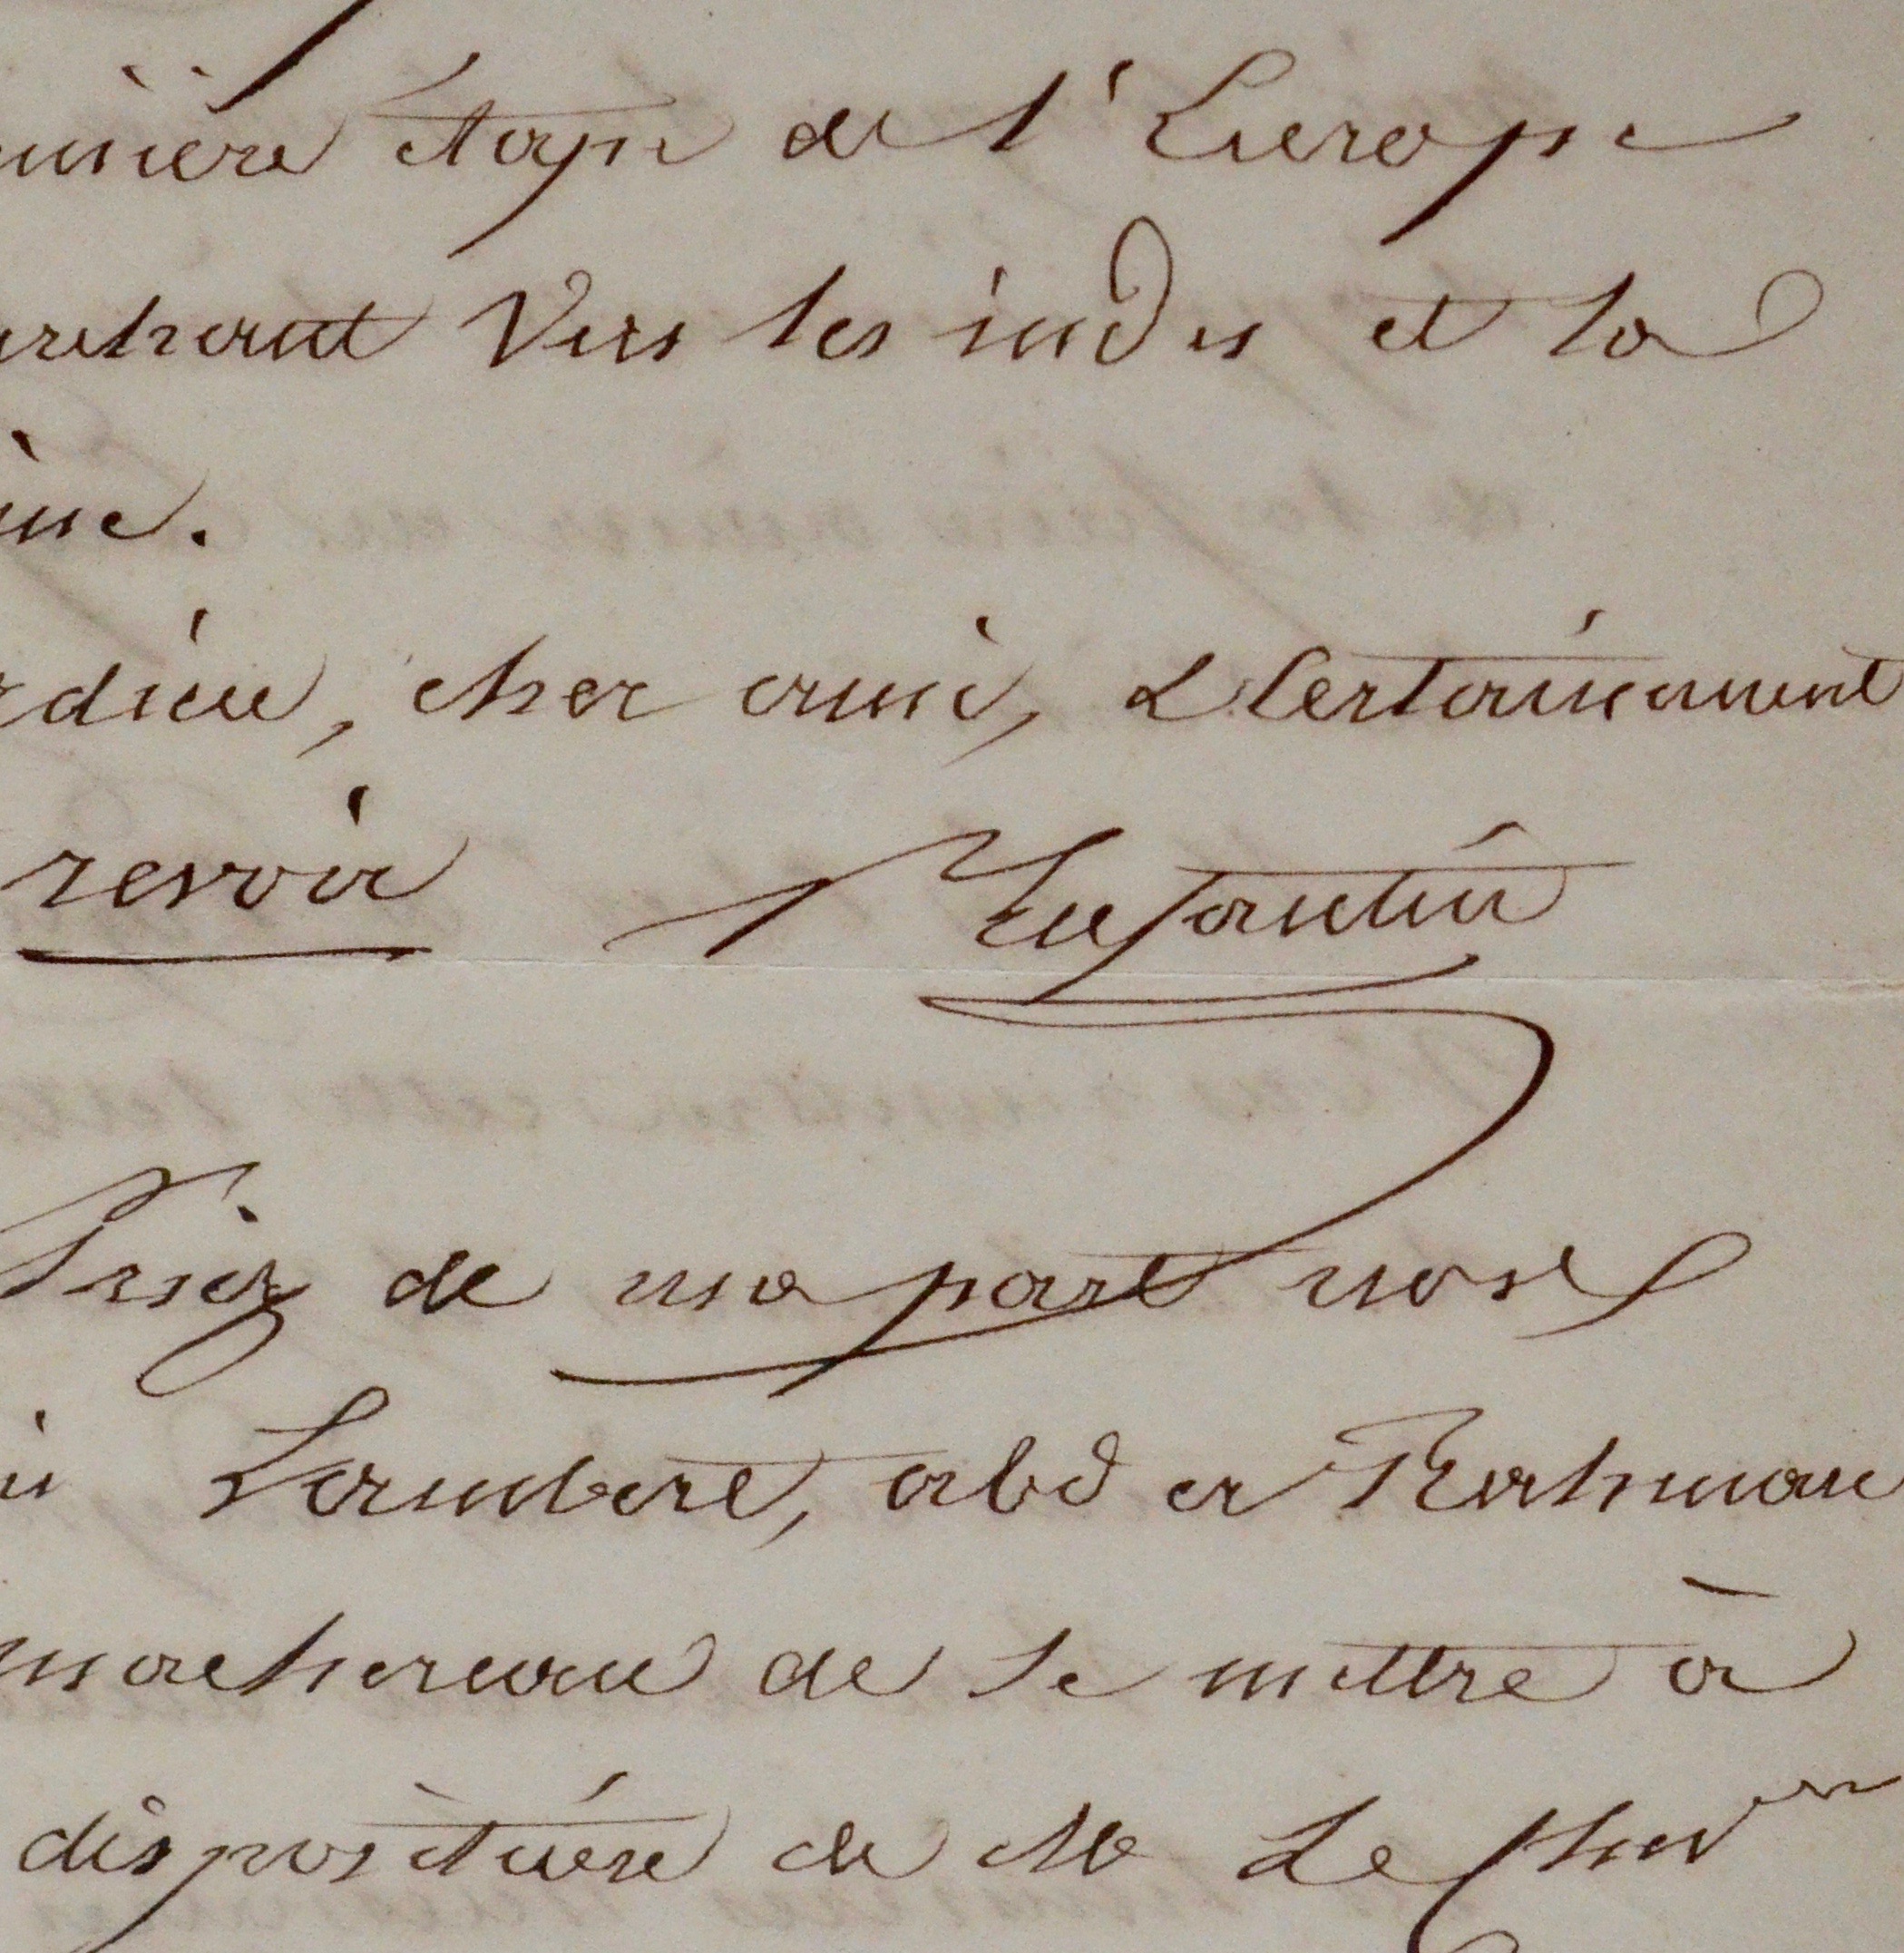 mière étape de l'Europe
archant Vers les indes et la
ine.
adieu, cher ami, & Certainement
revoir P Enfantin
Priez de ma part nos
Lambert, abd er Rahman
machereau de se mettre à
disposition de Mr Le Chever